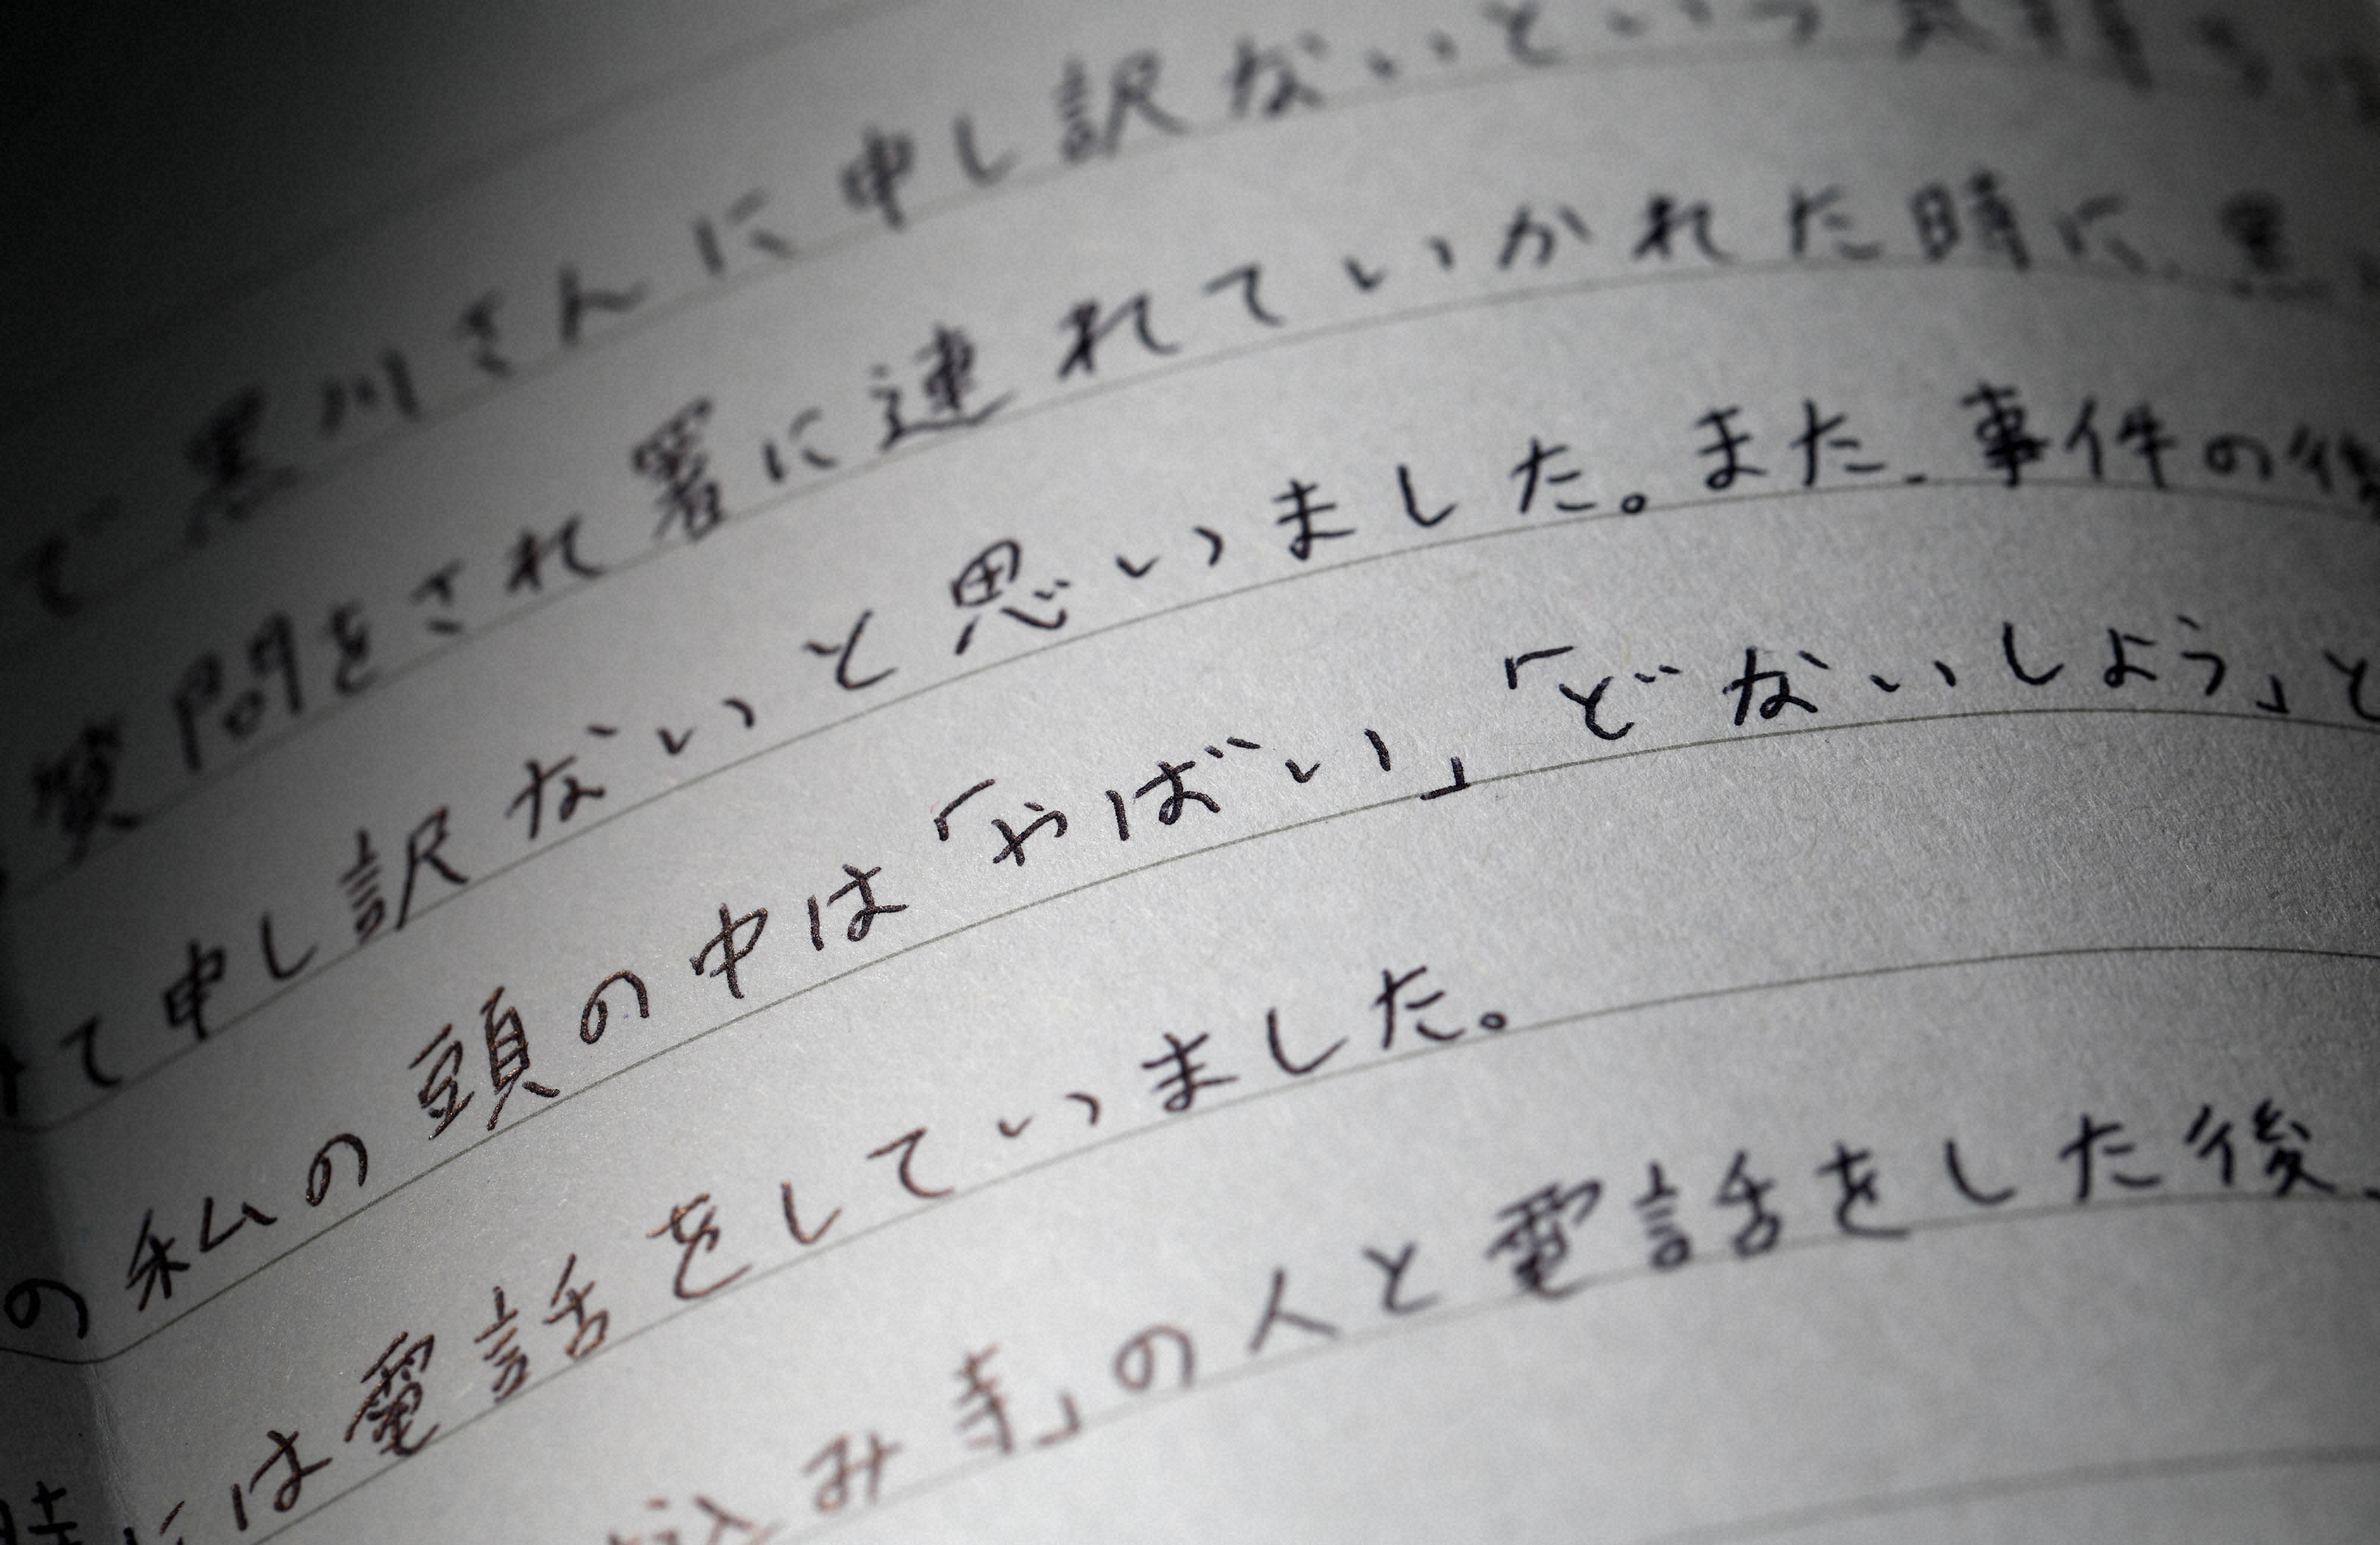 で黒川さんに申し訳ないという気持ち
質問をされ署に連れていかれた時に、黒
て申し訳ないと思いました。また、事件の後
の私の頭の中は「やばい」「どないしよう」と
時には電話をしていました。
込み寺」の人と電話をした後、